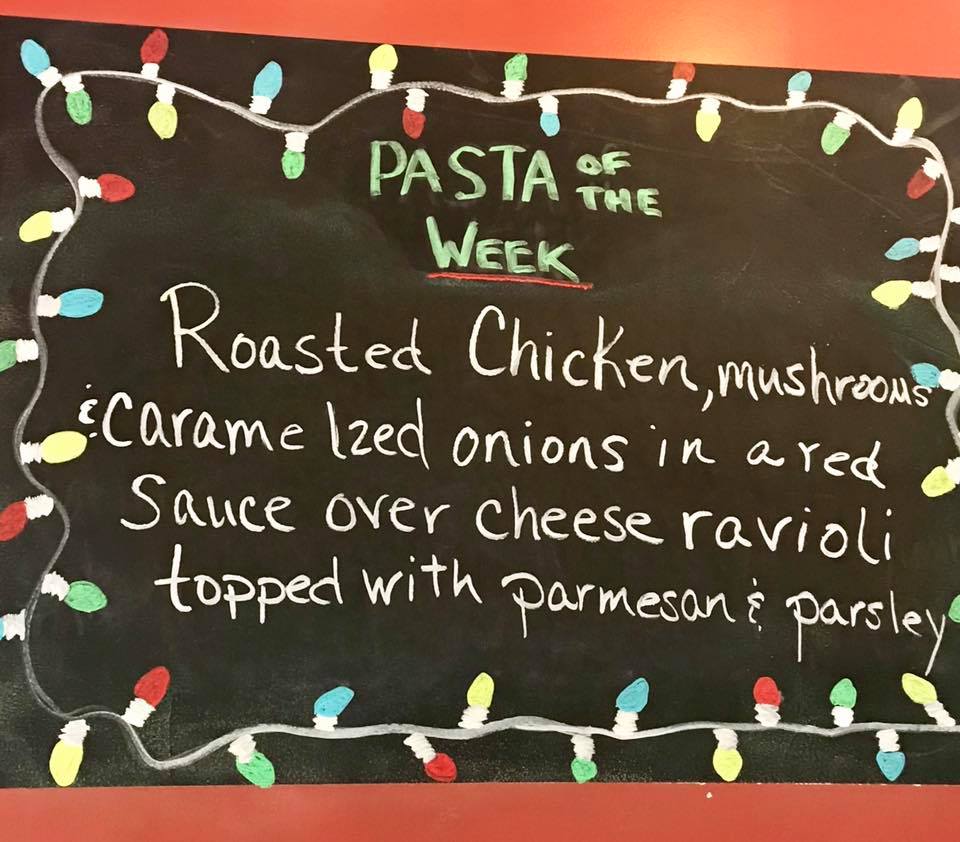 PASTA OF THE
WEEK
Roasted Chicken, mushrooms
& Caramelzed onions in a red
Sauce over cheese ravioli
topped with parmesan & parsley